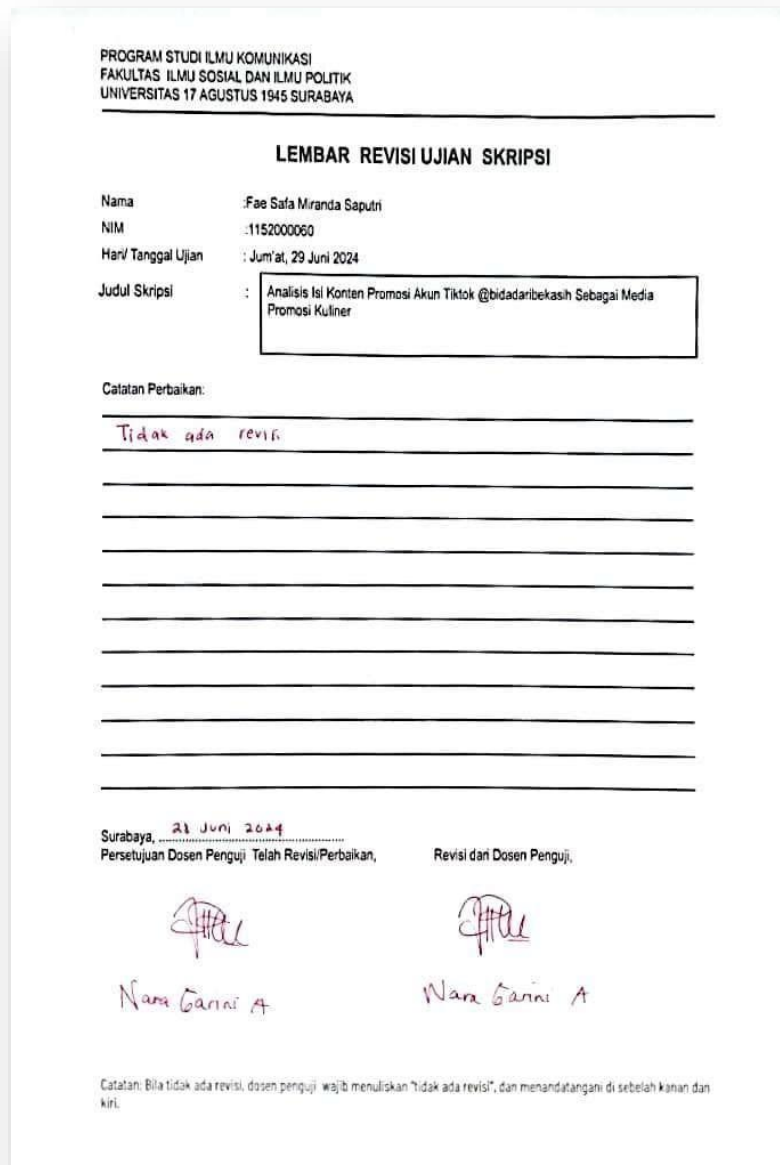 PROGRAM STUDI ILMU KOMUNIKASI
FAKULTAS ILMU SOSIAL DAN ILMU POLITIK
UNIVERSITAS 17 AGUSTUS 1945 SURABAYA
LEMBAR REVISI UJIAN SKRIPSI
Nama :Fae Safa Miranda Saputri
NIM :1152000060
Hari/ Tanggal Ujian : Jum'at, 29 Juni 2024
Judul Skripsi : Analisis Isi Konten Promosi Akun Tiktok @bidadaribekasih Sebagai Media
Promosi Kuliner
Catatan Perbaikan:
Tidak ada revisi
Surabaya, 28 Juni 2024
Persetujuan Dosen Penguji Telah Revisi/Perbaikan, Revisi dari Dosen Penguji,
Nara Garini A Nara Garini A
Catatan: Bila tidak ada revisi, dosen penguji wajib menuliskan "tidak ada revisi", dan menandatangani di sebelah kanan dan
kiri.